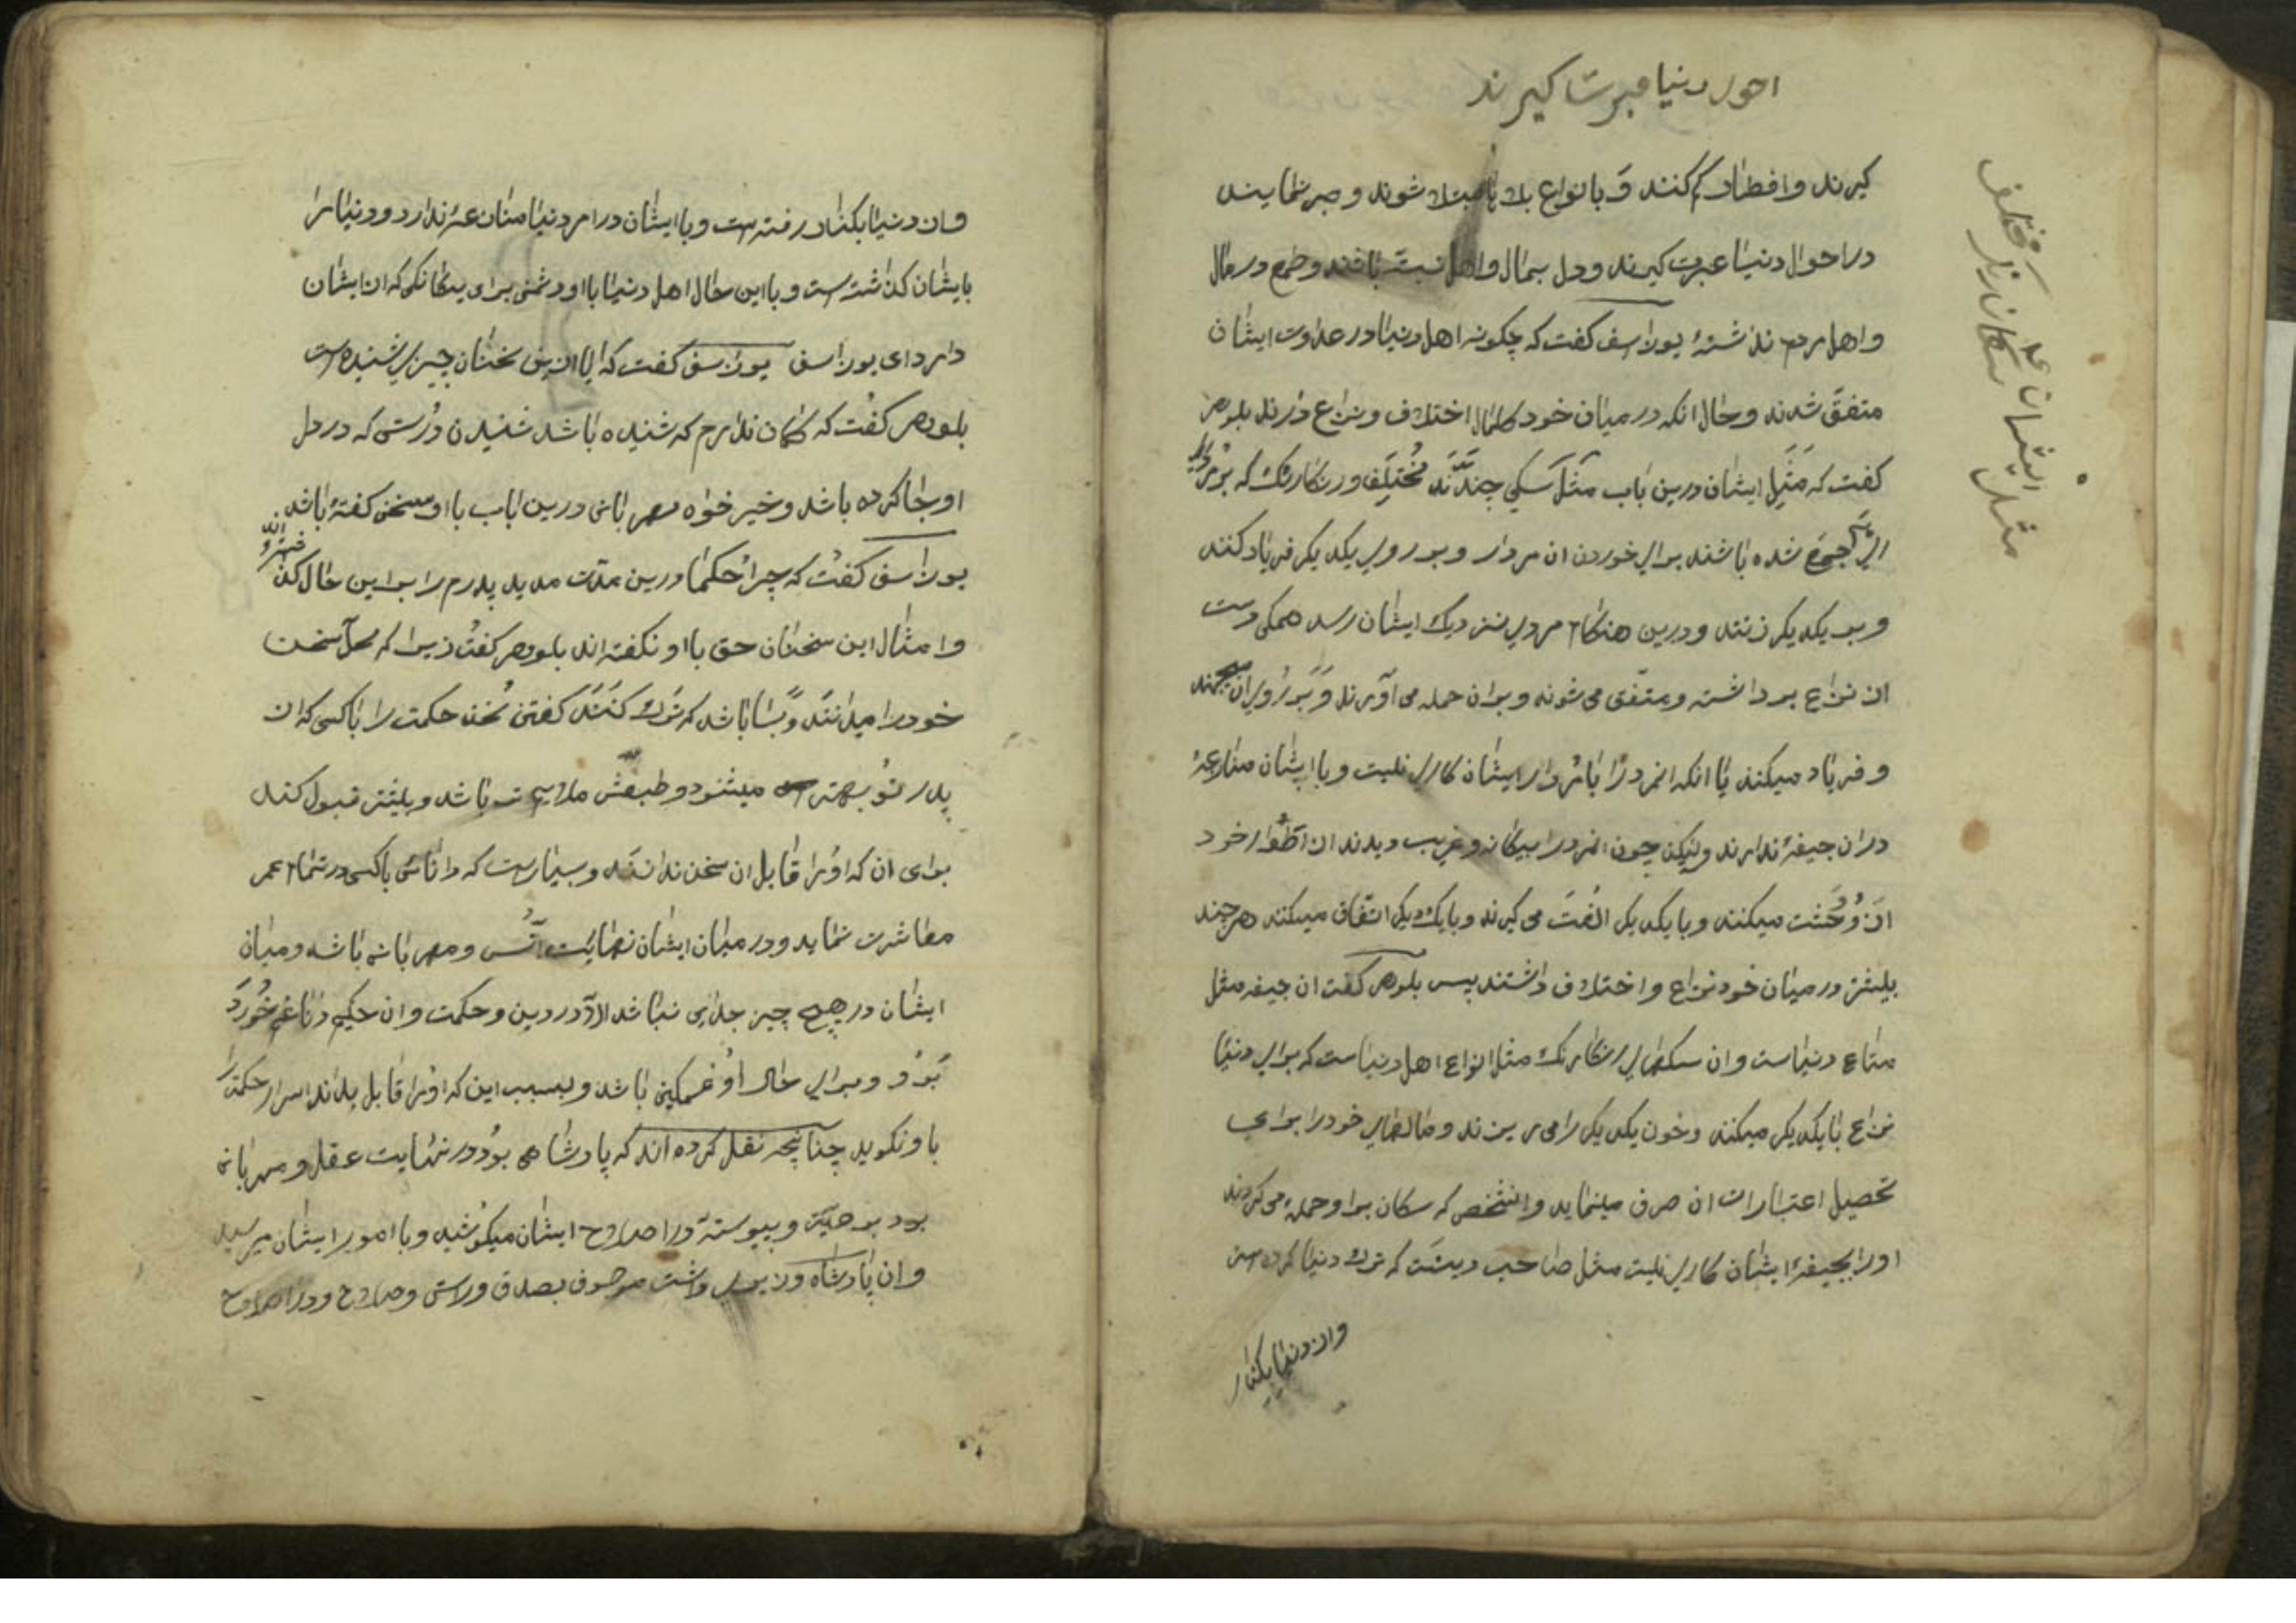 احول دنیا عبرت گیرند
گیرند و افطار کم کنند و بانواع بلاها مبتلا شوند و صبر نمایند
در احوال دنیا عبرت گیرند و دل بمال و اهل نبسته باشند و طمع در مال
و اهل مردم نداشته یوذاسف گفت که چگونه اهل دنیا در عداوت ایشان
متفق شدند و حال انکه در میان خود کمال اختلاف و نزاع دارند بلوهر
گفت که مثل ایشان درین باب مثل سگی چندند مختلف و رنگارنگ که بر مردار
جمع شده باشند برای خوردن ان مردار و بر روی یکدیگر فریاد کنند
و بر یکدیگر زنند و درین هنگام مردی نزدیک ایشان رسد همگی دست
از نزاع برداشته و متفق می شوند و بر ان حمله می آورند و بر روی ان میجهند
و فریاد میکنند با انکه انمرد را با مردار ایشان کاری نیست و با ایشان منازعۀ
در ان جیفه ندارند ولیکن چون انمرد را بیگانه و غریب دیدند از اطوار خود
ازو وحشت میکنند و با یکدیگر الفت می گیرند و با یکدیگر اتفاق میکنند هر چند
بیشتر در میان خود نزاع و اختلاف داشتند پس بلوهر گفت ان جیفه مثل
متاع دنیاست و ان سگهای رنگارنگ مثل انواع اهل دنیاست که برای دنیا
نزاع با یکدیگر میکنند و خون یکدیگر را می ریزند و مالهای خود را برای
تحصیل اعتبارات ان صرف مینماید و انشخص که سگان برا و حمله می کردند
او را بجیفۀ ایشان کاری نیست مثل صاحب دینست که ترک دنیا کرده است
و از دنیا بکنار
مثل ایشان سگان رنگ مختلف
و از دنیا بکنار رفته است و با ایشان در امر دنیا منازعۀ ندارد و دنیا را
بایشان گذاشته است و با این حال اهل دنیا با او دشمنی برای بیگانگی که از ایشان
دارد ای یوذاسف یوذاسف گفت که ایا از این سخنان چیزی شنیده است
بلوهر گفت که گمان ندارم که شنیده باشد شنیدن درستی که در دل
او جا کرده باشد و خیر خواه مهربانی درین باب با او سخن گفته باشد
یوذاسف گفت که چرا حکما درین مدت مدید پدرم را بر این حال گذ
و امثال این سخنان حق با او نگفته اند بلوهر گفت زیرا که محل سخن
خود را میدانند و بسا باشد که ترک کنند گفتن سخن حکمت را با کسی که از
پدر تو بهتر میشنود و طبعش ملایم تر باشد و بیشتر قبول کند
برای ان که او را قابل ان سخن ندانند و بسیارست که دانائی با کسی در تمام عمر
معاشرت نماید و در میان ایشان نهایت انس و مهربانی باشد و میان
ایشان در هیچ چیز جدایی نباشد الا در دین و حکمت و ان حکیم دانا غم خورد
برو و برای حال او غمگین باشد و بسبب این که او را قابل نداند اسرار حکمت را
با و نگوید چنانچه نقل کرده اند که پادشاهی بود در نهایت عقل و مهربانی
بود بر رعیت و پیوسته در اصلاح ایشان میکوشید و با امور ایشان میرسید
و ان پادشاه وزیری داشت موصوف بصدق و راستی و صلاح و در اصلاح